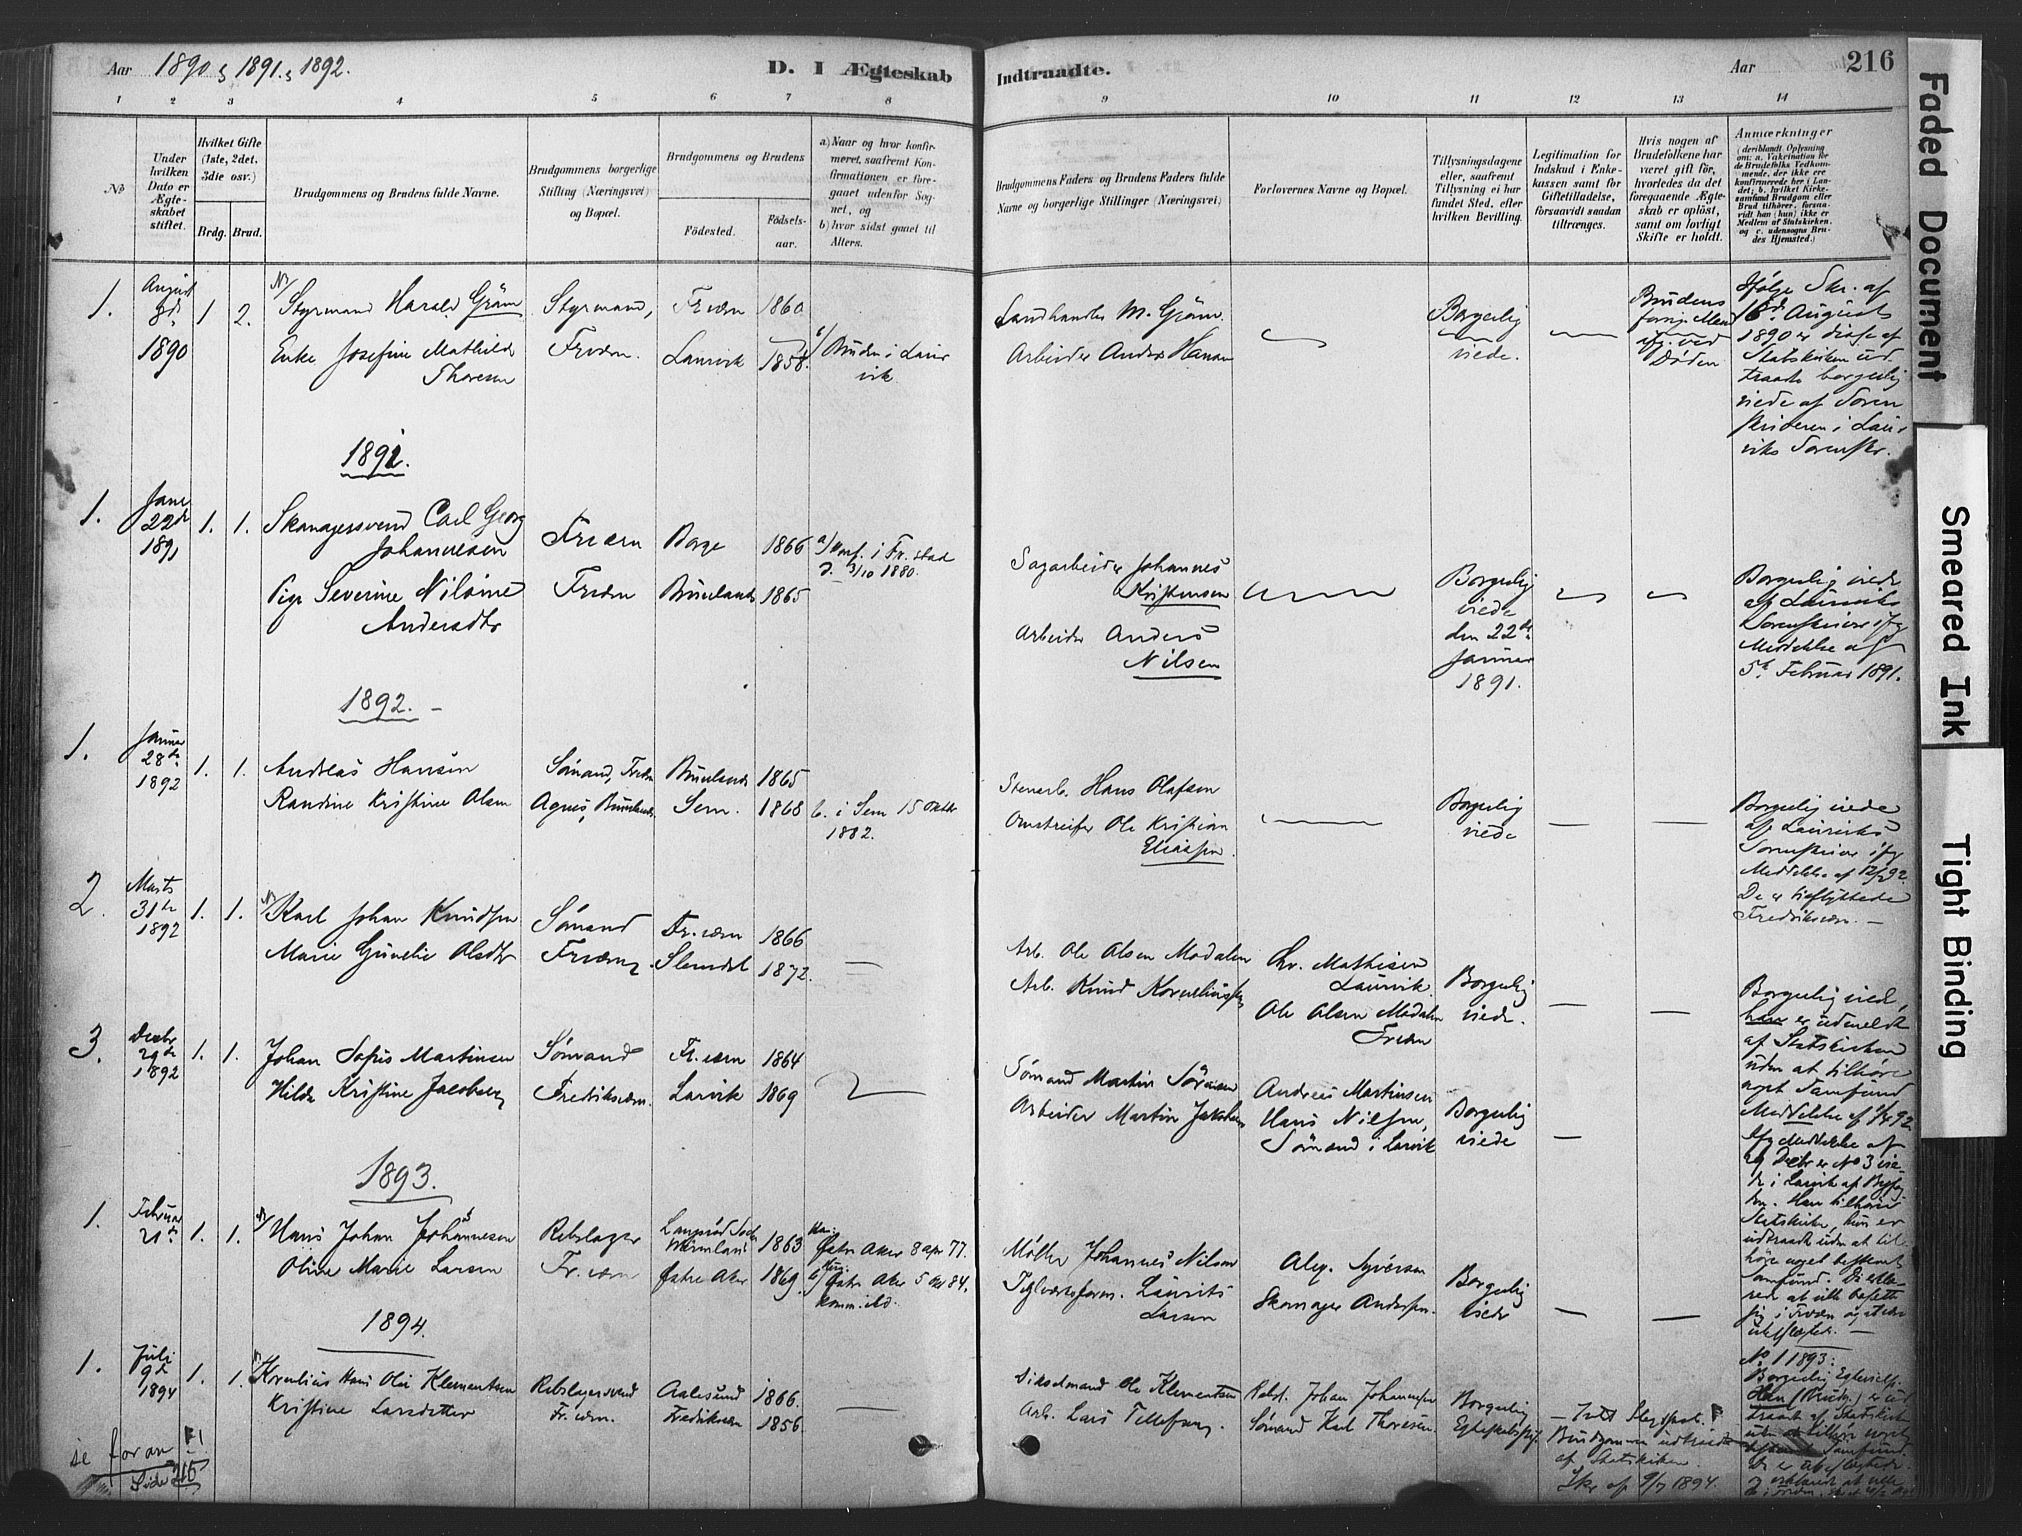 Aar 1890, 1891, 1892.
D. I Ægteskab
Indtraadte.
Aar
216
1 2 3 4 5 6 7 8 9 10 11 12 13 14
No
Under hvilken Dato er Ægteskabet stiftet.
Hvilket Gifte (1ste, 2det, 3die osv.)
Brdg. Brud.
Brudgommens og Brudens fulde Navne.
Brudgommens borgerlige Stilling (Næringsvei) og Bopæl.
Brudgommens og Brudens
Fødested.
Fødselsaar.
a) Naar og hvor konfirmeret, saafremt Konfirmationen er foregaaet udenfor Sognet, og
b) hvor sidst gaaet til Alters.
Brudgommens Faders og Brudens Faders fulde Navne og borgerlige Stillinger (Næringsvei)
Forlovernes Navne og Bopæl.
Tillysningsdagene eller, saafremt Tillysning ei har fundet Sted, efter hvilken Bevilling.
Legitimation for Indskud i Enkekassen samt for Giftetilladelse, forsaavidt saadan tiltrænges.
Hvis nogen af Brudefolkene har været gift før, hvorledes da det foregaaende Ægteskab er opløst, samt om lovligt Skifte er holdt.
Anmærkninger
(deriblandt Oplysning om: a. Vakcination for de Brudefolks Vedkommende, der ikke ere konfirmerede her i Landet; b. hvilket Kirkesamfund Brudgom eller Brud tilhører, forsaavidt han (hun) ikke er Medlem af Statskirken, og c. udensogns Brudes Hjemsted.)
Faded Document
Smeared Ink
Tight Binding
1. August 1890 1 2.
Styrmand Harald Grøm Styrmand, Fr.værn 1860
Enke Josefine Mathilde Thoresen Fr.værn. Laurvik 1858. Bruden i Laurvik
Landhandler M. Grøm.
Arbeider Anders Hansen
Borgerlig viede.
Brudens forrige Mand ved Døden
Ifølge Skr. af 16de August 1890 er disse af Statskirken udtraadte borgerlig viede af Sorenskriveren i Laurviks Sorenskr.
1891.
1. Janr 22de 1891 1. 1.
Skomagersvend Carl Georg Johannesen Fr.værn Borge 1866 a) konf. i Fr.stad d. 3/10 1880.
Pige Severine Nilsine Andersdtr Fr.værn Brunlanes 1865
Sagarbeider Johannes Kristensen
Arbeider Anders Nilsen
Borgerlig viede den 22de Januar 1891.
Borgerlig viede af Laurviks Sorenskriver ifg Meddelelse af 5te Februar 1891.
1892.
1. Januar 28de 1892 1. 1.
Andreas Hansen Sømand, Fr.værn Brunlanes 1865
Randine Kristine Olsen Agnes, Brunlanes Sem. 1868 b. i Sem 15 Oktbr 1882.
Stenarb. Hans Olafsen
Omstreifer Ole Kristian Eliassen.
Borgerlig viede
Borgerlig viede af Laurviks Sorenskriver ifg Meddelelse af 12/2 92. De er tilflyttede Fredriksværn.
2. Marts 31te 1892 1. 1.
Karl Johan Knudsen Sømand Fr.værn 1866
Marie Gunelie Olsdtr Fr.værn Slemdal 1872.
Arb. Ole Olsen Modalen
Arb. Knud Korneliussen
Chr. Mathisen Laurvik.
Ole Olsen Modalen Fr.værn
Borgerlig viede.
Borgerlig viede, han er udmeldt af Statskirken uden at tilhøre noget Samfund
3. Decbr 29de 1892 1. 1.
Johan Sofus Martinsen Sømand Fr.værn 1864
Hilda Kristine Jacobsen Fredriksværn. Larvik 1869
Sømand Martin Sørensen
Arbeider Martin Jakobsen
Andreas Martinsen
Hans Nilsen, Sømand i Larvik
Borgerlig viede
Ifg Meddelelse af 29 Decbr er No 3 viede i Larvik af Byfogden. Han tilhører Statskirken, hun er udtraadt uden at tilhøre noget bestemt Samfund.
1893.
1. Februar 21de 1. 1.
Hans Johan Johannesen Rebslager 1863 Østre Aker 8 apr 77.
Oline Marie Larsen Fr.værn Østre Aker 1869. Østre Aker 5 Okt 84.
Møller Johannes Nilsen
Teglværksform. Laurits Larsen
Alex. Syversen
Skomager Andersen.
Borgerlig viede
1894.
1. Juli 9de 1894 1. 1.
Kornelius Hans Olai Klementsen Rebslagersvend Aalesund 1866.
Kristine Larsdatter Fr.værn. Fredriksværn 1856.
Ole Klementsen
Arb. Lars Tellefsen.
Rebsl. Johan Johannesen
Sømand Karl Thoresen.
Borgerlig
No 1 1893:
Brudgommen udtraadt af Statskirken.
Skr af 9/7 1894.
se foran
Side 215